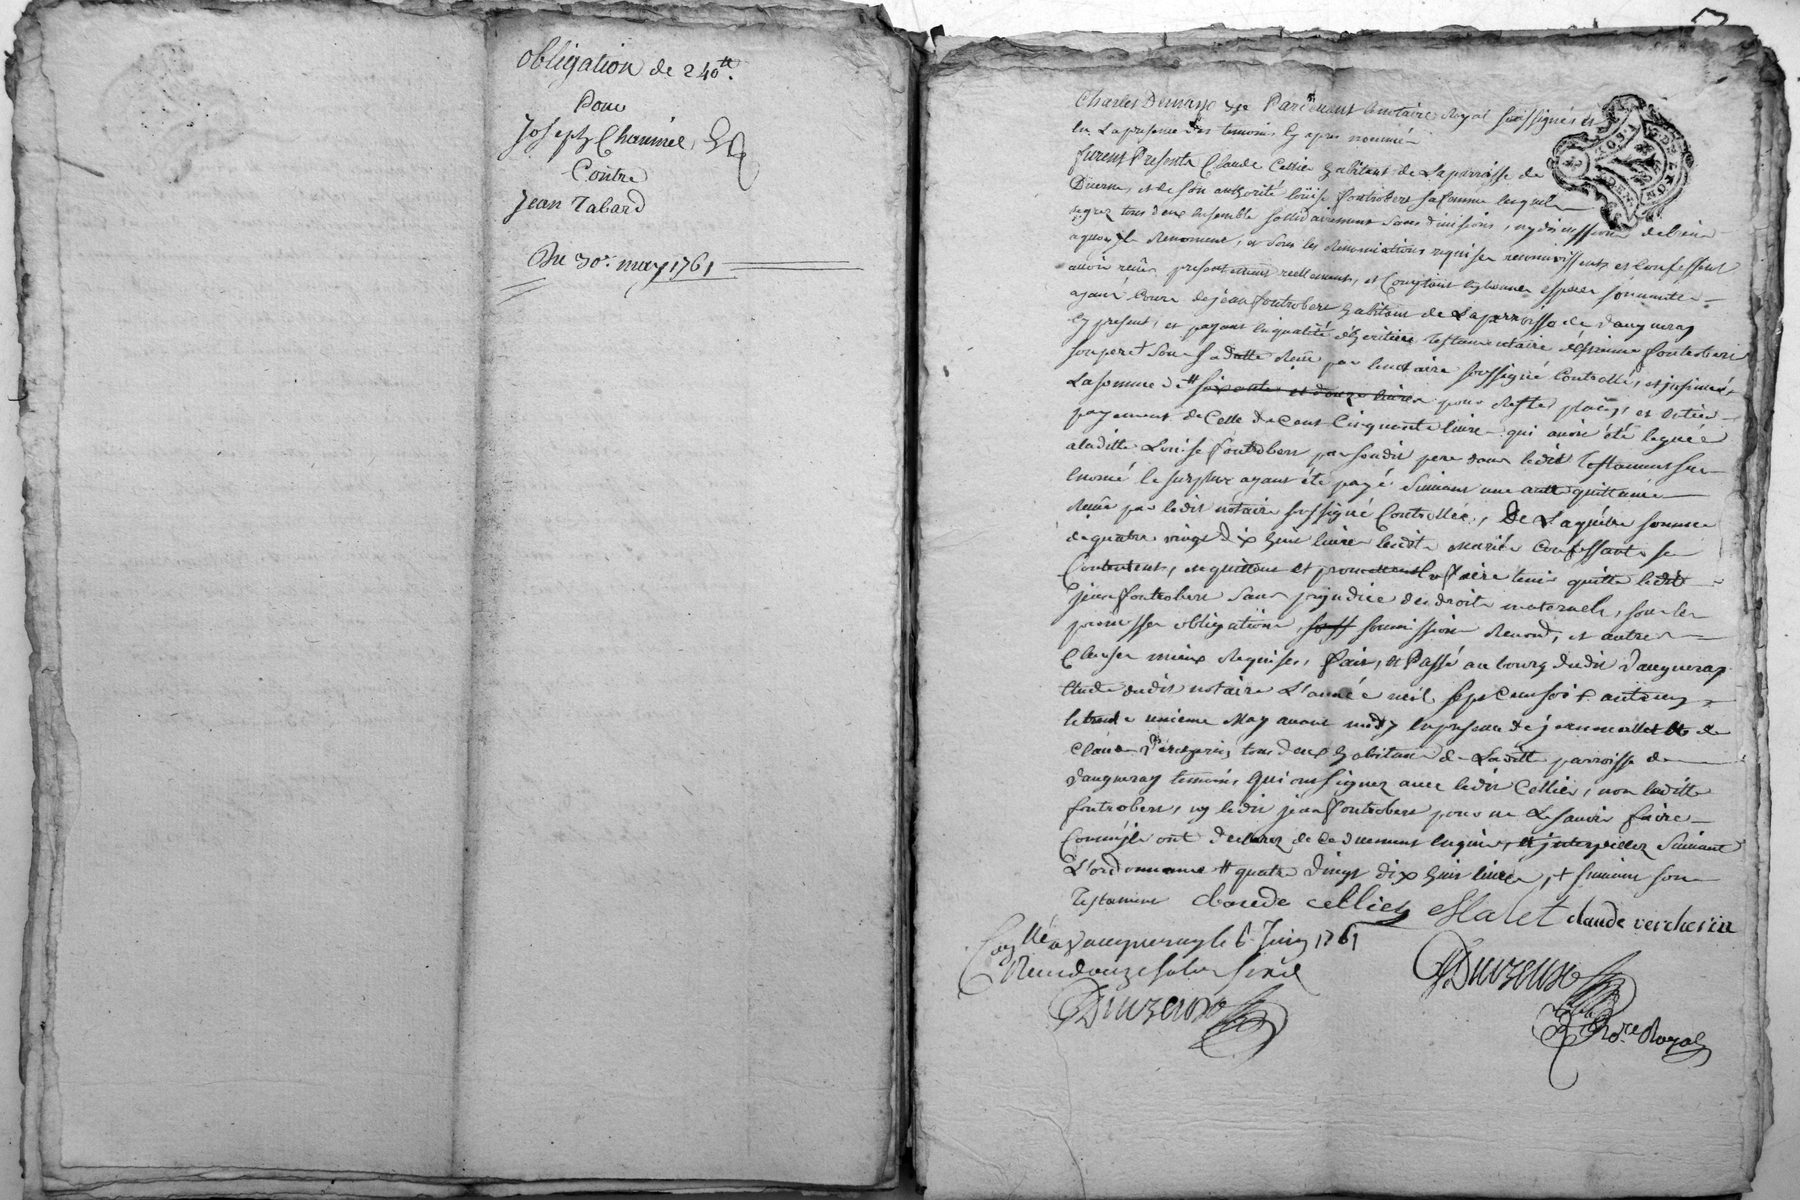 obligation de 240tt.
Pour
Joseph Chammel
Contre
Jean Tabard
Du 30e. may 1761
Pardevant le notaire Royal soussigné et
en La presence des temoins cy apres nommés
furent Presents Claude Cellier habitant de La parroisse de
et de son authorité Loüise fontrobert sa femme lesquels
tous deux ensemble sollidairement sans division, ny discussion de biens
a quoy ils Renoncent, et sous les Renonciations requises reconnoissent et Confessent
avoir reçu presentement reellement, et Comptant en bonnes especes sonnantes
ayant Cours de jean fontrobert habitant de La parroisse de Vaugneray
cy present, et payant en qualité d'heritier Testamentaire fontrobert
son pere Reçu par le notaire soussigné Controllé, et insinué
La somme de tt soixante et douze livres pour Reste, et entier
payement de Celle de Cent Cinquante livres qui avoit été leguée
a laditte Louise fontrobert par son dit pere dans ledit Testament sus
enoncé le surplus ayant été payé suivant une quittance
Reçue par ledit notaire soussigné Controllée, De Laquelle somme
de quatre vingt dix huit livres lesdits Mariés Confessants se
Contentent, en quittent et promettent faire tenir quitte ledit
jean fontrobert sans prejudice des droits maternels, sous les
promesses obligations, soss soumissions Renond, et autres
Clauses mieux Requises, fait, et Passé au bourg dudit Vaugneray
Etude dudit notaire L'année mil sept cent soixante un
le trente unieme May avant midy en presence de jean de
Claude tous deux habitants de Laditte parroisse de
Vaugneray temoins, qui ont signez avec ledit Cellier, non laditte
fontrobert, ny ledit jean fontrobert pour ne Le savoir faire
Comm'ils ont declarez de ce duement enquis, et interpellez suivant
L'ordonnance tt quatre vingt dix huit livres, + suivant son
Testament claude cellier Malet claude vercherin
a Vaugneray le 6 Juin 1761
Reçu douze sols
Duvzeux
Duvzeux
No.re Royal